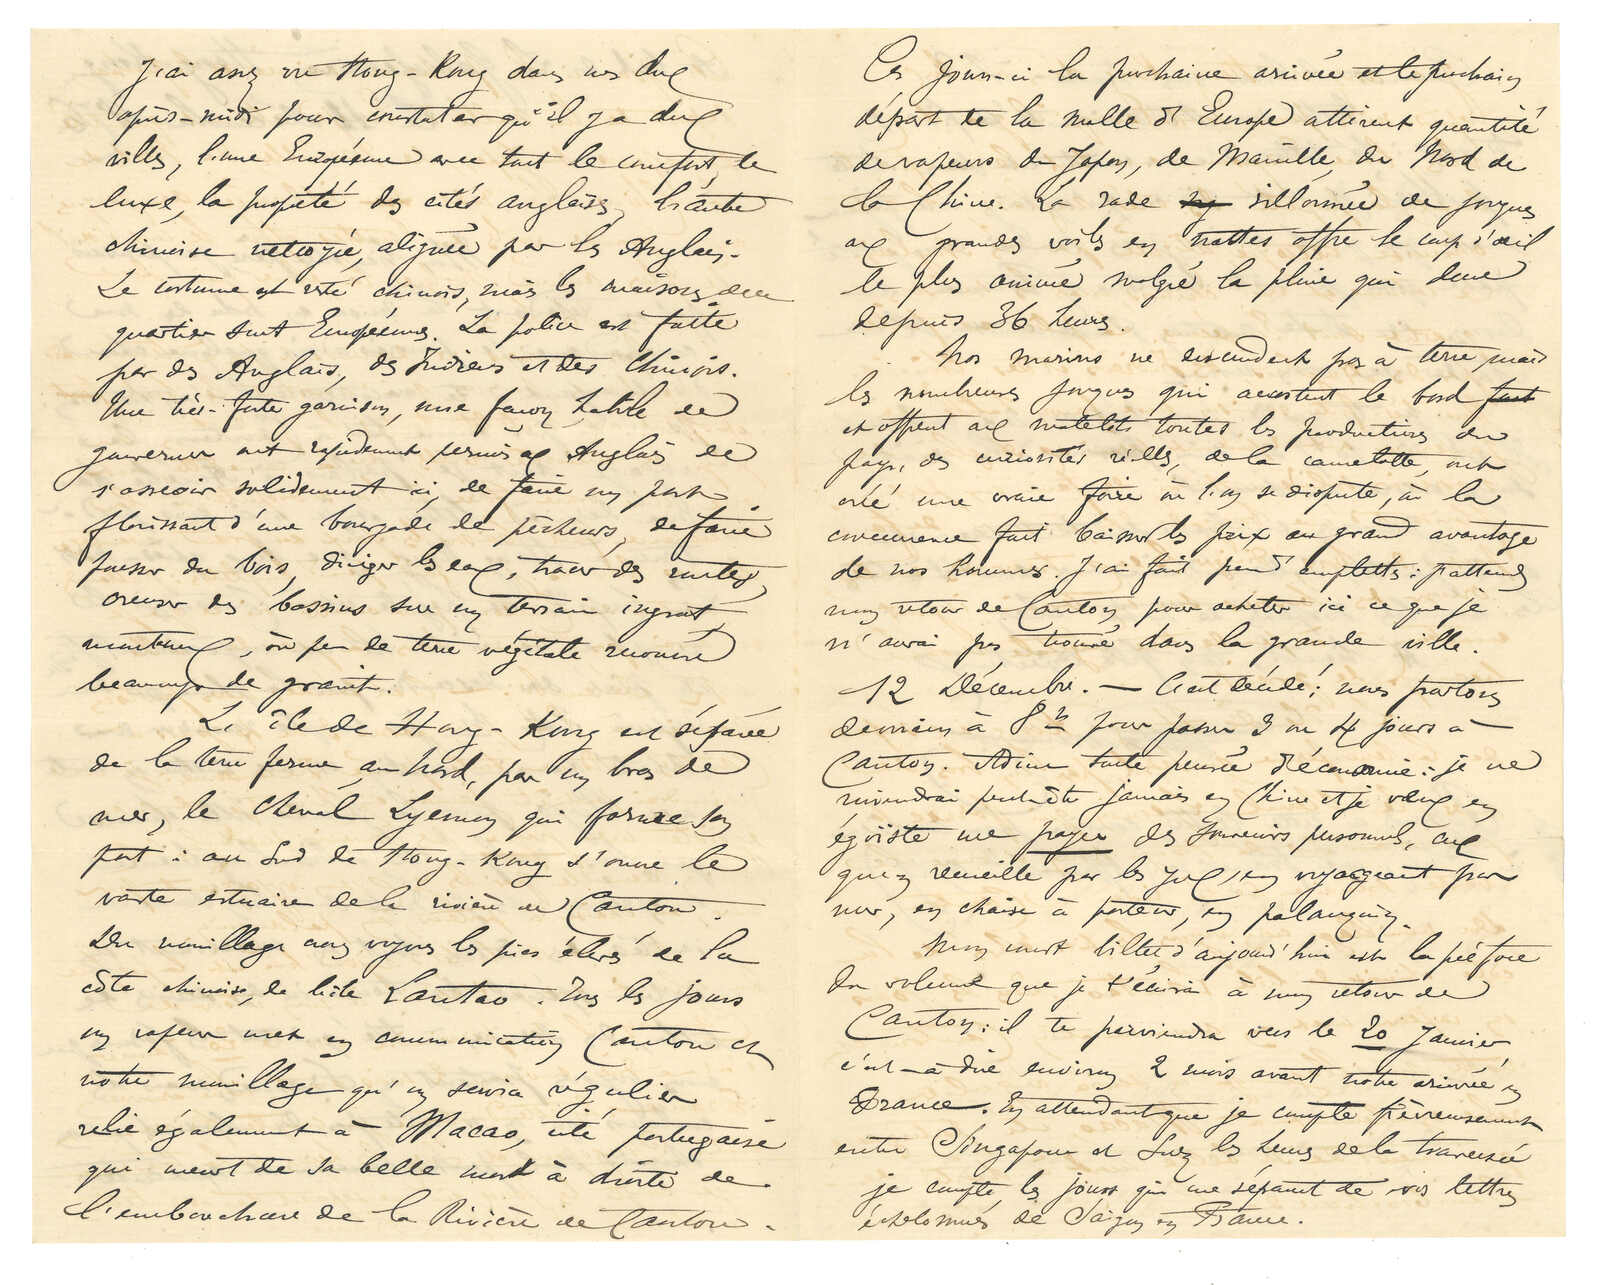 J'ai assez vu Hong-Kong dans ces deux
après-midi pour constater qu'il y a deux
villes, l'une Européenne avec tout le confort, le
luxe, la propreté des cités anglaises, l'autre
chinoise nettoyée, alignée par les Anglais.
Le costume est resté chinois, mais les maisons de ce
quartier sont Européennes. La police est faite
par des Anglais, des Indiens et des Chinois.
Une très-forte garnison, une façon habile de
gouverner ont rapidement permis aux Anglais de
s'asseoir solidement ici, de faire un port
florissant d'une bourgade de pêcheurs, de faire
pousser du bois, diriger les eaux, tracer des routes,
creuser des bassins sur un terrain ingrat
montueux, où peu de terre végétale recouvre
beaucoup de granit.
L'île de Hong-Kong est séparée
de la terre ferme au Nord, par un bras de
mer, le chenal Lyemoon qui forme son
port : au Sud de Hong-Kong s'ouvre le
vaste estuaire de la rivière de Canton.
Du mouillage nous voyons les pics élevés de la
côte chinoise, de l'île Lantao. Tous les jours
un vapeur met en communication Canton et
notre mouillage qu'un service régulier
relie également à Macao, cité portugaise
qui meurt de sa belle mort à droite de
l'embouchure de la Rivière de Canton.
Ces jours-ci la prochaine arrivée et le prochain
départ de la malle d'Europe attirent quantité
de vapeurs du Japon, de Manille, du Nord de
la Chine. La rade sillonnée de jonques
aux grandes voiles en nattes offre le coup d'œil
le plus animé malgré la pluie qui dure
depuis 36 heures.
Nos marins ne descendent pas à terre mais
les nombreuses jonques qui accostent le bord font
et offrent aux matelots toutes les productions du
pays, des curiosités réelles, de la camelotte, ont
créé une vraie foire où l'on se dispute, où la
concurrence fait baisser les prix au grand avantage
de nos hommes. J'ai fait peu d'emplettes : j'attends
mon retour de Canton pour acheter ici ce que je
n'aurai pas trouvé dans la grande ville.
12 Décembre. — C'est décidé ; nous partons
demain à 8h pour passer 3 ou 4 jours à
Canton. Adieu toute pensée d'économie : je ne
reviendrai peut-être jamais en Chine et je veux en
égoïste me payer des souvenirs personnels, ceux
qu'on recueille par les yeux, en voyageant par
mer, en chaise à porteur, en palanquin.
Mon court billet d'aujourd'hui est la préface
du volume que je t'écrirai à mon retour de
Canton : il te parviendra vers le 20 Janvier
c'est-à-dire environ 2 mois avant notre arrivée en
France. En attendant que je compte fiévreusement
entre Singapour et Suez les heures de la traversée
je compte les jours qui me séparent de vos lettres
échelonnées de Saïgon en France.